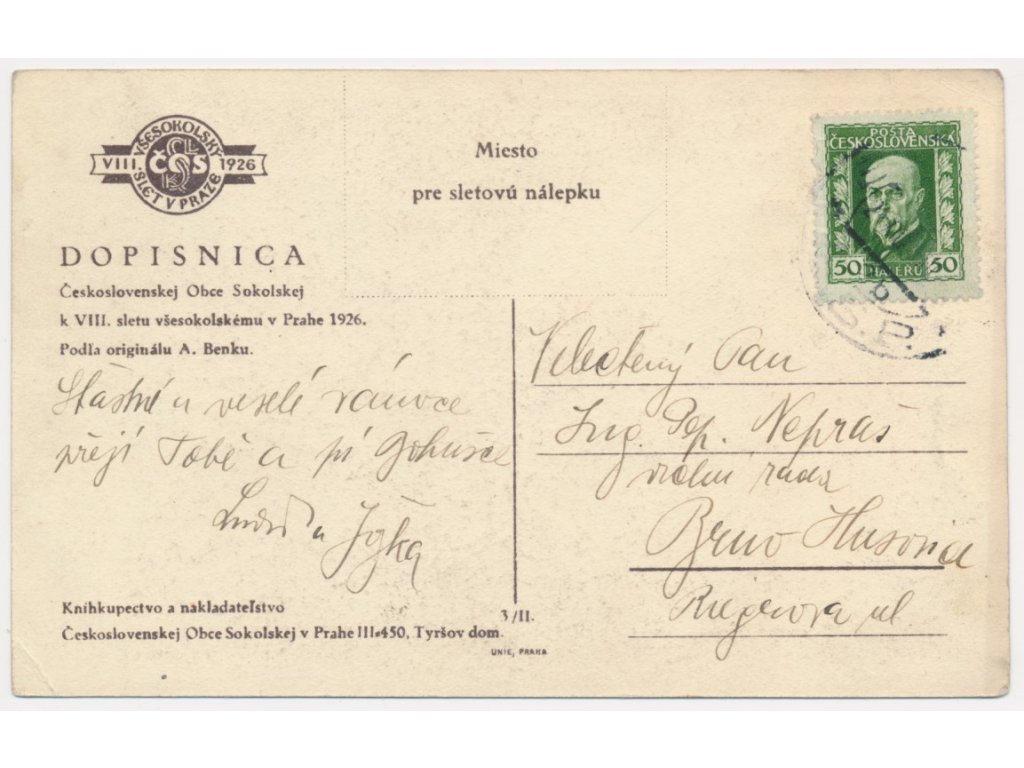 VŠESOKOLSKÝ
VIII. ČOS 1926
SLET V PRAZE
Miesto
pre sletovú nálepku
POŠTA
ČESKOSLOVENSKÁ
50 HALÉŘŮ 50
DOPISNICA
Československej Obce Sokolskej
k VIII. sletu všesokolskému v Prahe 1926.
Podľa originálu A. Benku.
Šťastné a veselé vánoce
přejí Tobě a pí
a Jožka
Velectěný Pan
Ing. Pep. Nepraš
vrchní rada
Brno Husovice
Riegrova ul.
Kníhkupectvo a nakladateľstvo
Československej Obce Sokolskej v Prahe III-450, Tyršov dom.
3/II.
UNIE, PRAHA